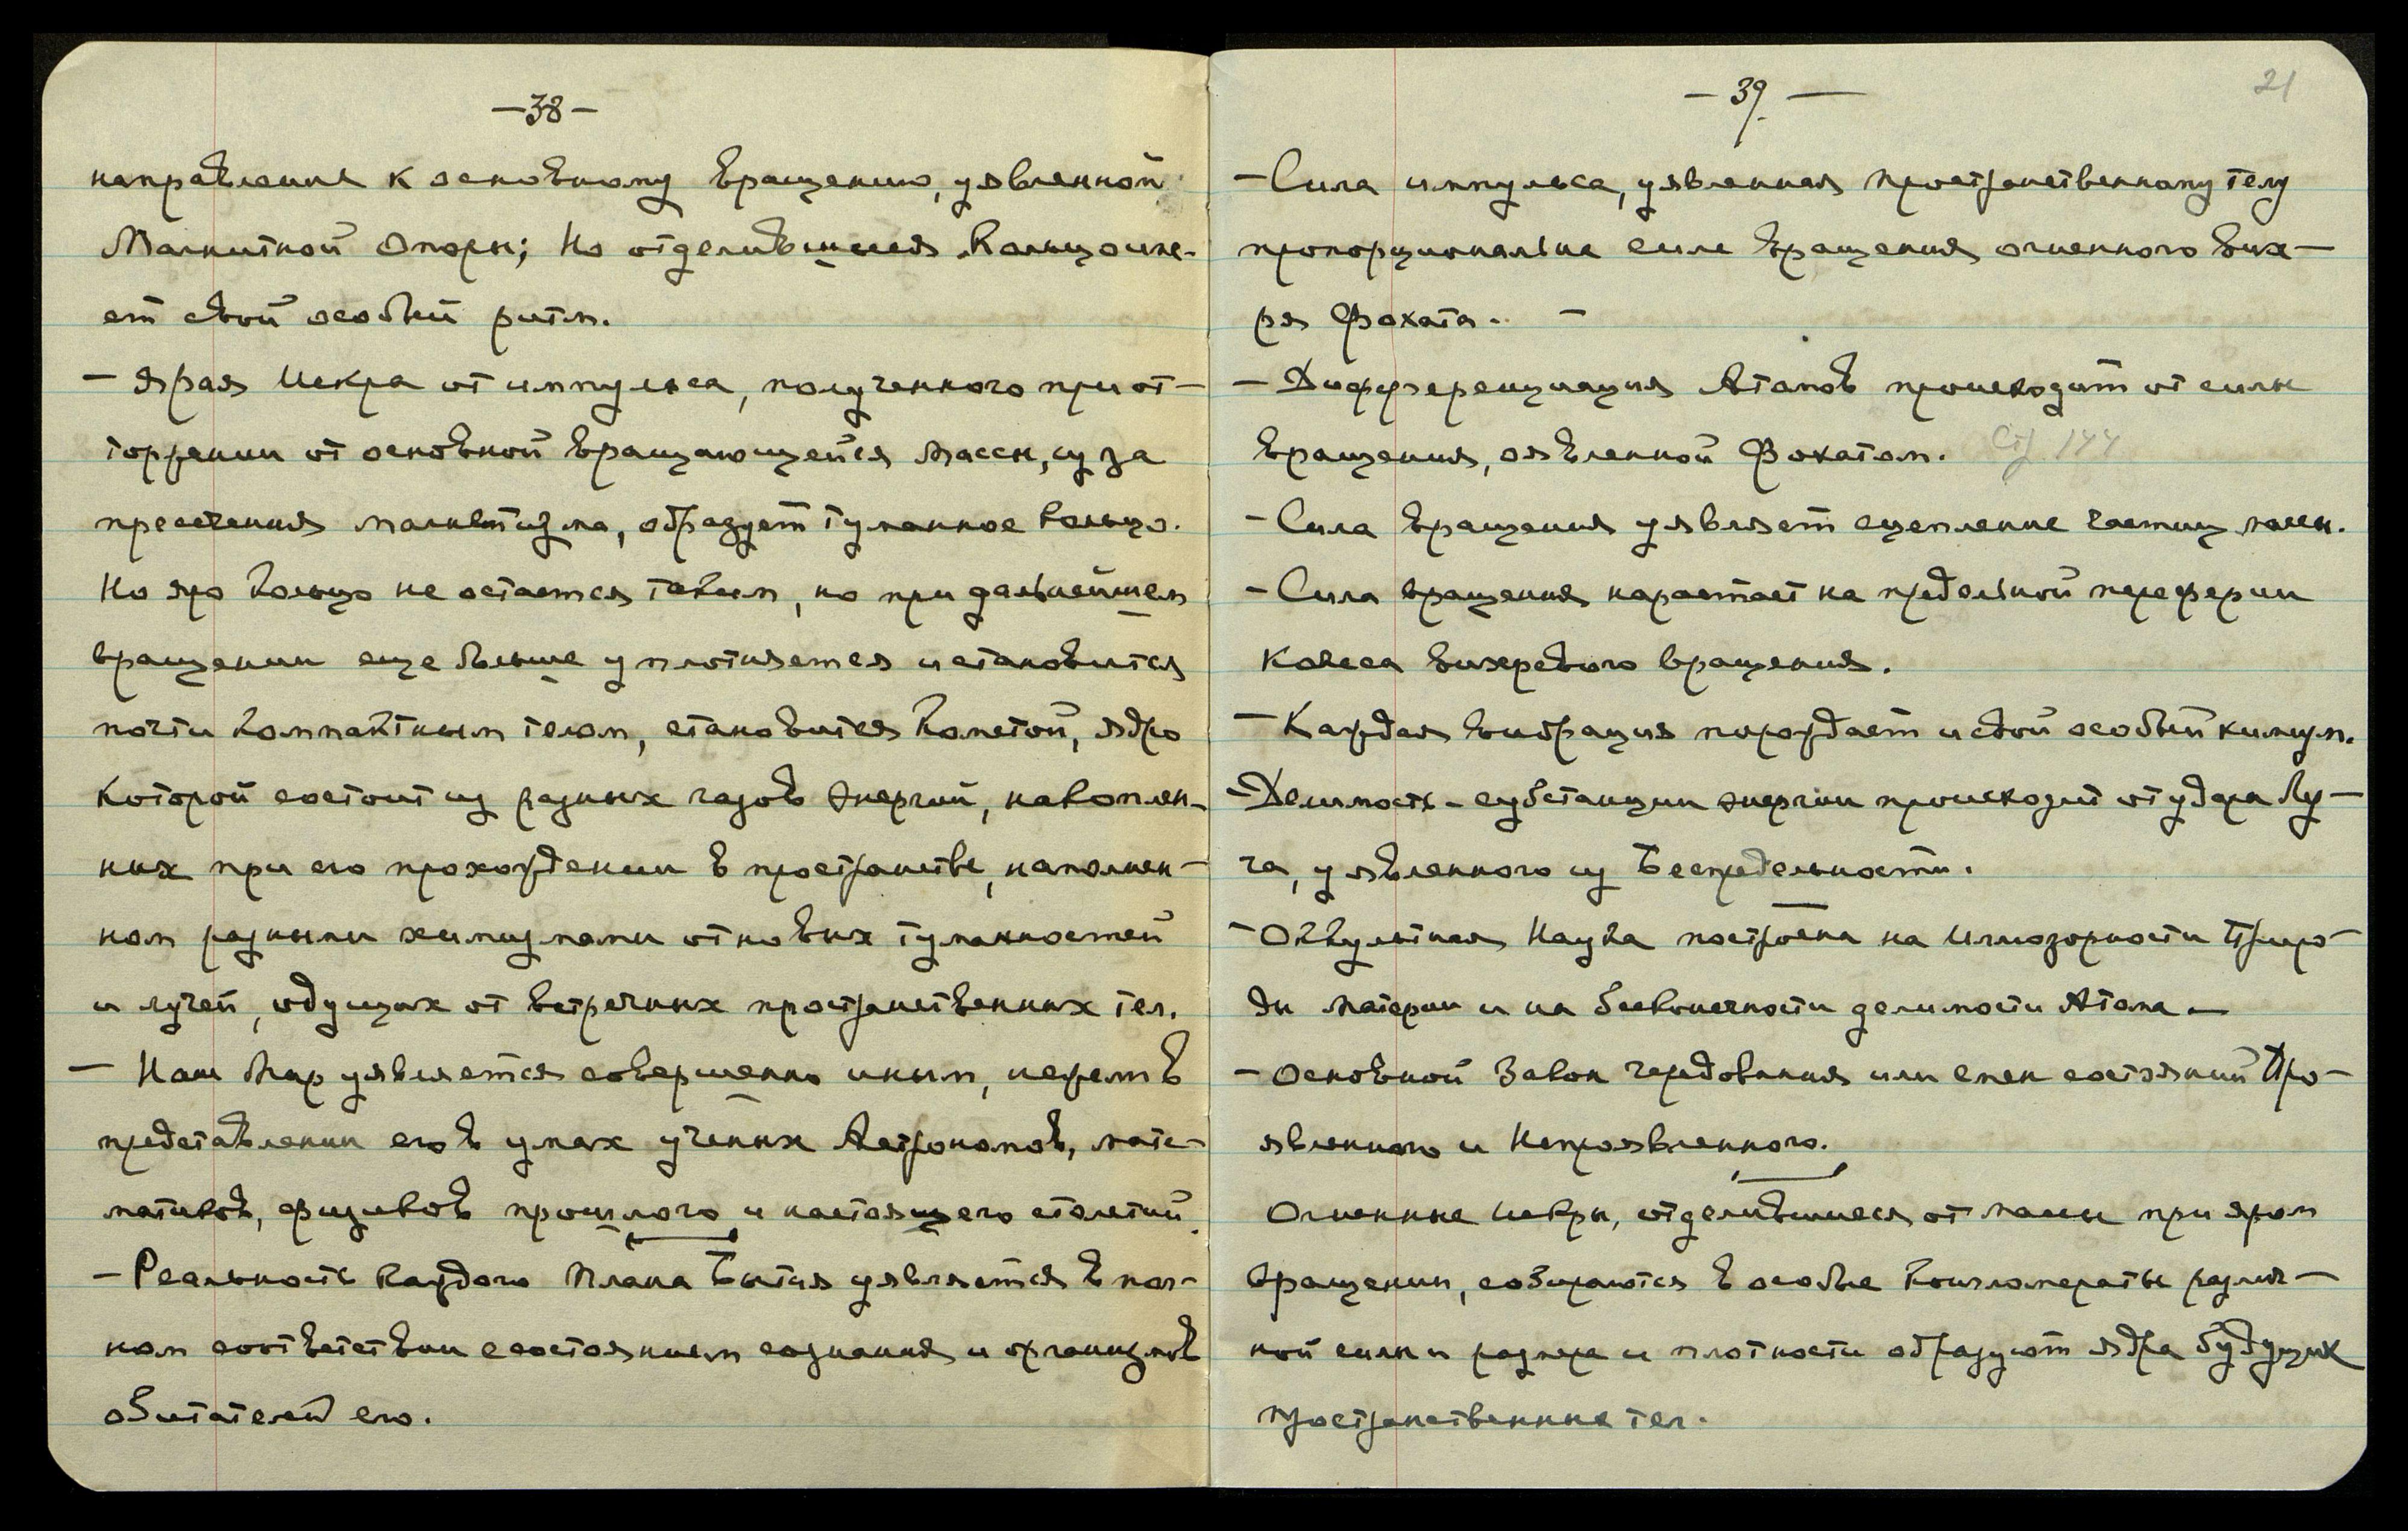 —38—
направления к основному вращению, уявленной
Магнитной Опоры; Но отделившееся Кольцо име-
ет свой особый ритм.
— Ярая Искра от импульса, полученного при от-
торжении от основной вращающейся массы, из за
пресечения магнетизма, образует туманное Кольцо.
Но яро Кольцо не остается таким, но при дальнейшем
вращении еще больше уплотняется и становится
почти компактным телом, становится Кометой, ядро
которой состоит из разных газов энергий, накоплен-
ных при его прохождении в пространстве, наполнен-
ном разными химизмами от новых туманностей
и лучей, идущих от встречных пространственных тел.
— Наш Мир уявляется совершенно иным, нежели в
представлении его в умах ученых Астрономов, мате-
матиков, физиков прошлого и настоящего столетий.
— Реальность каждого Плана Бытия уявляется в пол-
ном соответствии с состоянием сознания и организмов
обитателей его.
— 39. —
21
— Сила импульса, уявленная пространственному телу
пропорциональна силе вращения огненного Вих-
ря Фохата. —
— Дифференциация Атомов происходит от силы
вращения, оявленной Фохатом. Стр 144
— Сила вращения уявляет сцепление частиц массы.
— Сила вращения нарастает на предельной переферии
Колеса вихревого вращения.
— Каждая вибрация порождает и свой особый химизм.
— Делимость субстанции энергии происходит от удара Лу-
ча, уявленного из Беспредельности.
— Оккультная Наука построена на Иллюзорности Приро-
ды материи и на бесконечности делимости Атома —
— Основной Закон чередования или смен состояний Про-
явленного и Непроявленного.
Огненные Искры, отделившиеся от массы при яром
вращении, собираются в особые Конгломераты различ-
ной силы и размера и плотности образуют ядра будущих
пространственных тел.